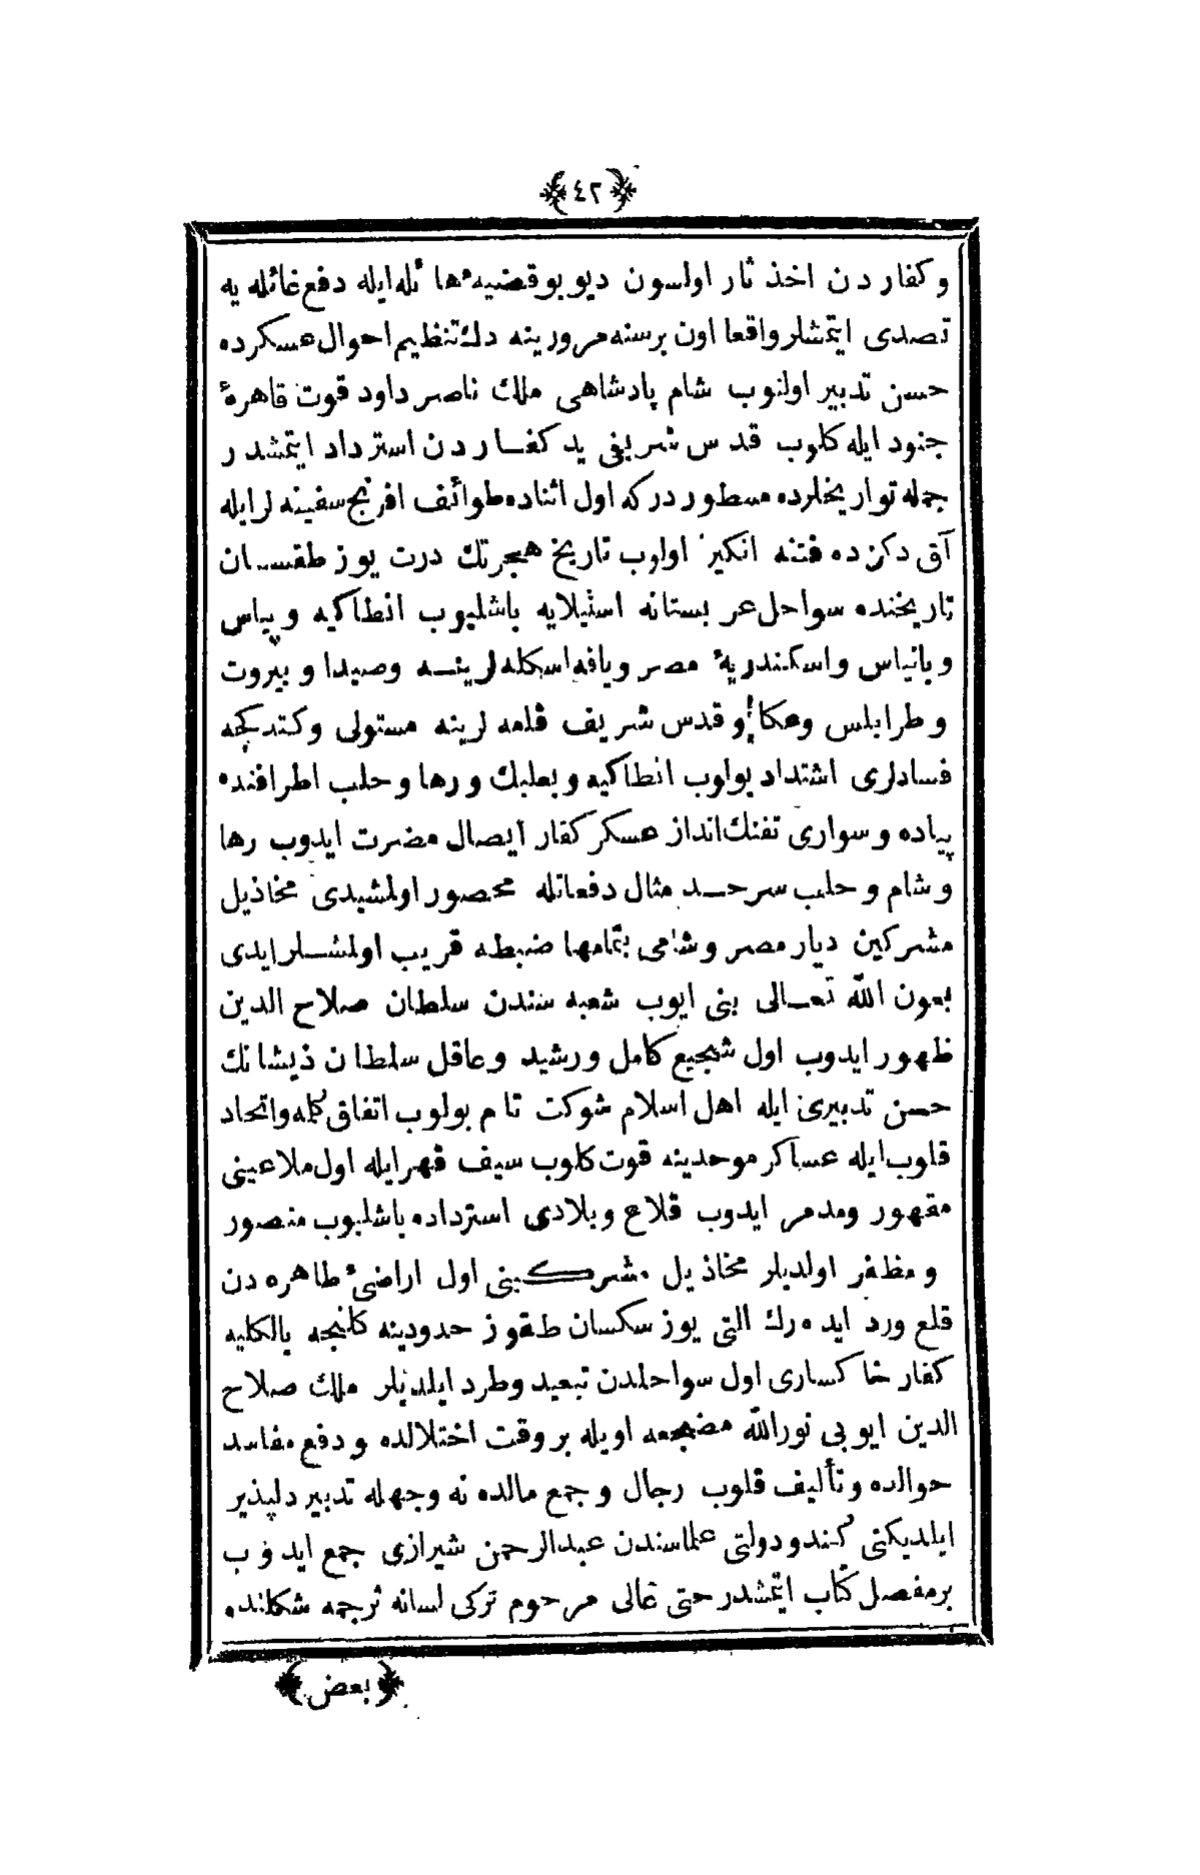 ﴿٤٢﴾
و كفاردن اخذ ثار اولسون ديوبو قضيهٔ هائله ايله دفع غائله يه
تصدى ايتمشلر واقعا اون برسنه مرورينه دك تنظيم احوال عسكرده
حسن تدبير اولنوب شام پادشاهى ملك ناصر داود قوت قاهرهٔ
جنود ايله كلوب قدس شريفى يد كفــاردن استرداد ايتمشدر
جمله تواريخلرده مسطور دركه اول اثناده طوائف افرنج سفينه لر ايله
آق دكزده فتنه انكيز اولوب تاريخ هجرتك درت يوز طقســان
تاريخنده سواحل عربستانه استيلايه باشليوب انطاكيه و پياس
و بانياس و اسكندريهٔ مصر و يافه اسكله لرينــه وصيدا و بيروت
و طرابلس وعكا و قدس شريف قلعه لرينه مستولى وكتدكجه
فسادلرى اشتداد بولوب انطاكيه و بعلبك و رها و حلب اطرافنده
پياده و سوارى تفنك انداز عسكر كفار ايصال مضرت ايدوب رها
و شام و حلب سرحــد مثال دفعاتله محصور اولمشيدى مخاذيل
مشركين ديار مصر و شامى بتمامها ضبطه قريب اولمشــلر ايدى
بعون الله تعــالى بنى ايوب شعبه سندن سلطان صلاح الدين
ظهور ايدوب اول شجيع كامل و رشيد و عاقل سلطان ذيشانك
حسن تدبيرى ايله اهل اسلام شوكت تام بولوب اتفاق كلمه واتحاد
قلوب ايله عساكر موحدينه قوت كلوب سيف قهر ايله اول ملاعينى
مقهور ومدمر ايدوب قلاع و بلادى استرداده باشليوب منصور
و مظفر اولديلر مخاذيل مشركـــينى اول اراضىٔ طاهره دن
قلع ورد ايده رك التى يوز سكسان طقوز حدودينه كلنجه بالكليه
كفار خاكسارى اول سواحلدن تبعيد وطرد ايلديلر ملك صلاح
الدين ايوبى نورالله مضجعه اويله بر وقت اختلالده و دفع مفاسد
حوالده و تأليف قلوب رجال و جمع مالده نه وجهله تدبير دلپذير
ايلديكنى كندو دولتى علماسندن عبدالرحمن شيرازى جمع ايدوب
برمفصل كتاب ايتمشدر حتى عالى مرحوم تركى لسانه ترجمه شكلنده
﴿بعض﴾